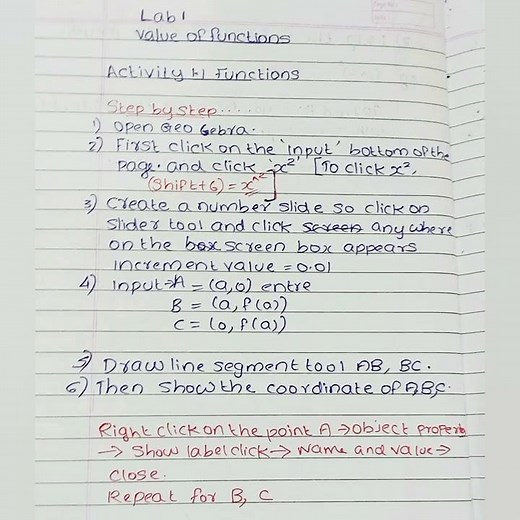 Lab 1
value of functions
Activity 1.1 Functions
Step by step....
1) Open Geo Gebra.
2) First click on the 'input' bottom of the
page. and click x² [To click x²,
(Shift+6) = x^2]
3) Create a number slide so click on
slider tool and click screen any where
on the box screen box appears
increment value = 0.01
4) Input→A = (a,0) entre
B = (a, f(a))
C = (0, f(a))
5) Draw line segment tool AB, BC.
6) Then show the coordinate of A,B,C.
Right click on the point A → object propert
→ show label click → Name and value →
close.
Repeat for B, C